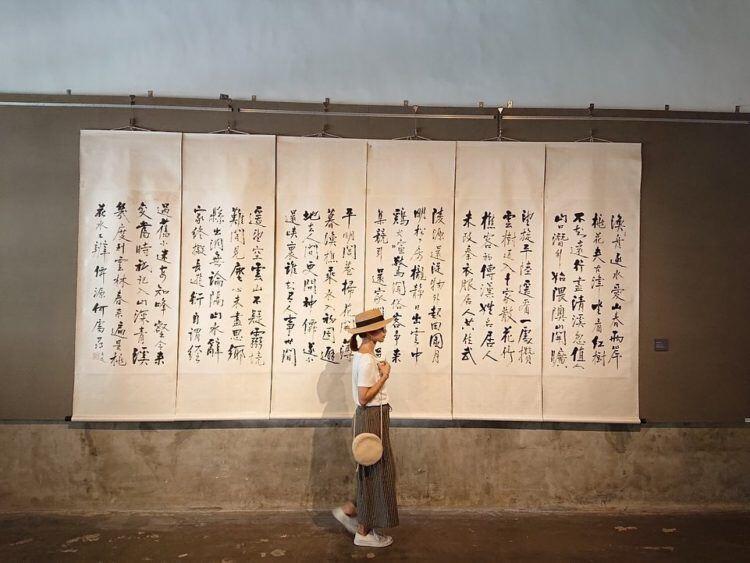 漁舟逐水愛山春兩岸
桃花夾古津坐看紅樹
不知遠行盡青溪忽值人
山口潛行始隈隩山開曠
望旋平陸遙看一處攢
雲樹近入千家散花竹
樵客初傳漢姓名居人
未改秦衣服居人共住武
陵源還從物外起田園月
明松下房櫳靜日出雲中
雞犬喧驚聞俗客爭來
集競引還家
平明閭巷掃花開薄
暮漁樵乘水入初因避
地去人間更問神僊遂不
還峽裏誰知有人事世間
遙望空雲山不疑靈境
難聞見塵心未盡思鄉
縣出洞無論隔山水辭
家終擬長遊衍自謂經
過舊不迷安知峰壑今來
變當時只記入山深青溪
幾度到雲林春來遍是桃
花水不辨僊源何處尋